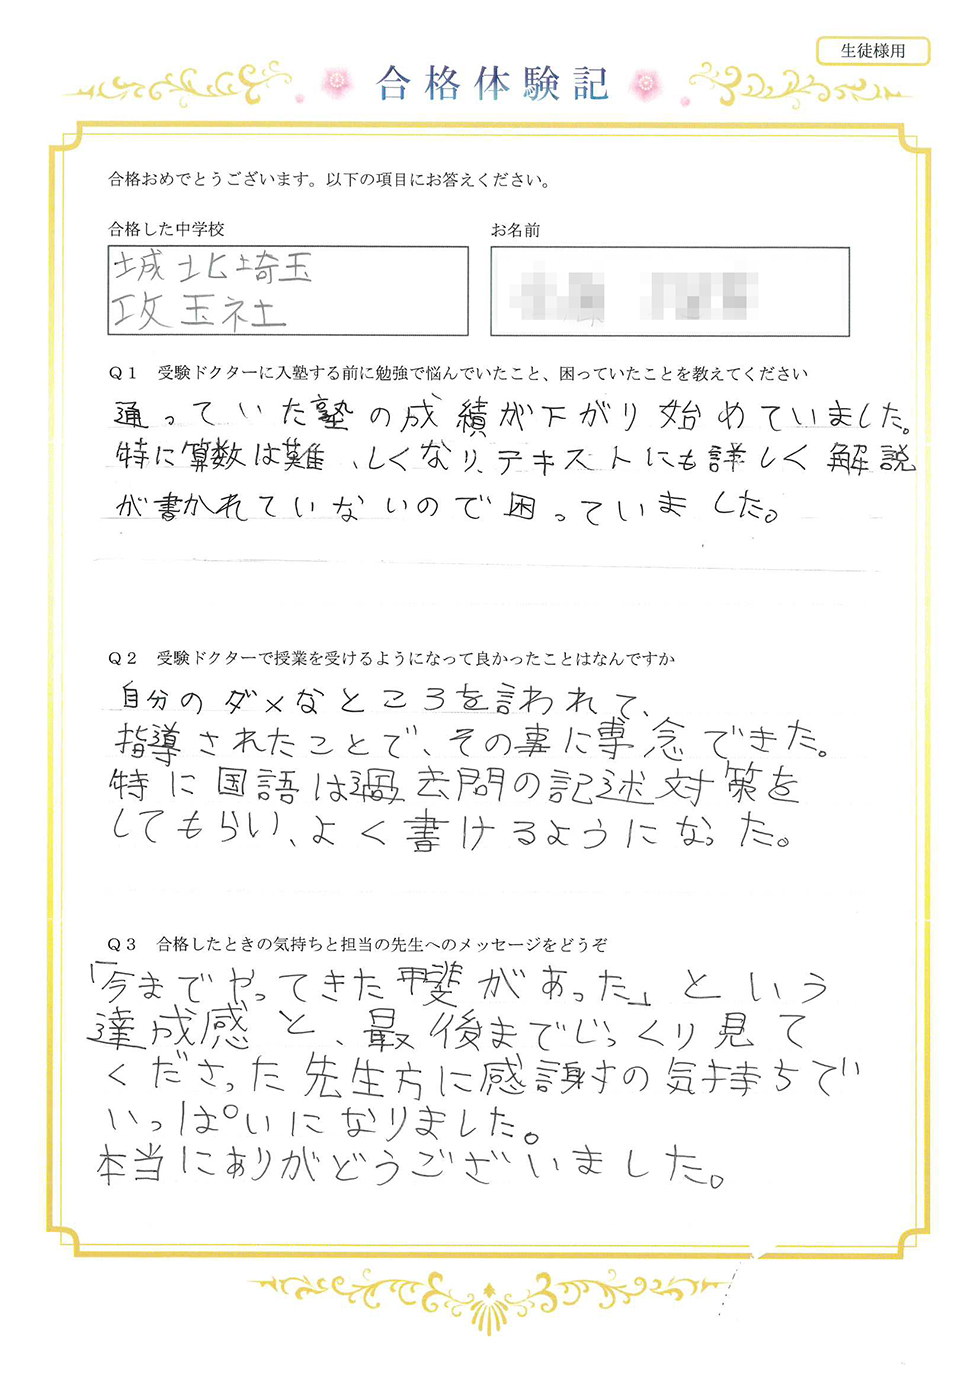 生徒様用
合格体験記
合格おめでとうございます。以下の項目にお答えください。
合格した中学校
お名前
城北埼玉
攻玉社
Q1 受験ドクターに入塾する前に勉強で悩んでいたこと、困っていたことを教えてください
通っていた塾の成績が下がり始めていました。
特に算数は難しくなり、テキストにも詳しく解説
が書かれていないので困っていました。
Q2 受験ドクターで授業を受けるようになって良かったことはなんですか
自分のダメなところを言われて、
指導されたことで、その事に専念できた。
特に国語は過去問の記述対策を
してもらい、よく書けるようになった。
Q3 合格したときの気持ちと担当の先生へのメッセージをどうぞ
「今までやってきた甲斐があった」という
達成感と、最後までじっくり見て
くださった先生方に感謝の気持ちで
いっぱいになりました。
本当にありがどうございました。